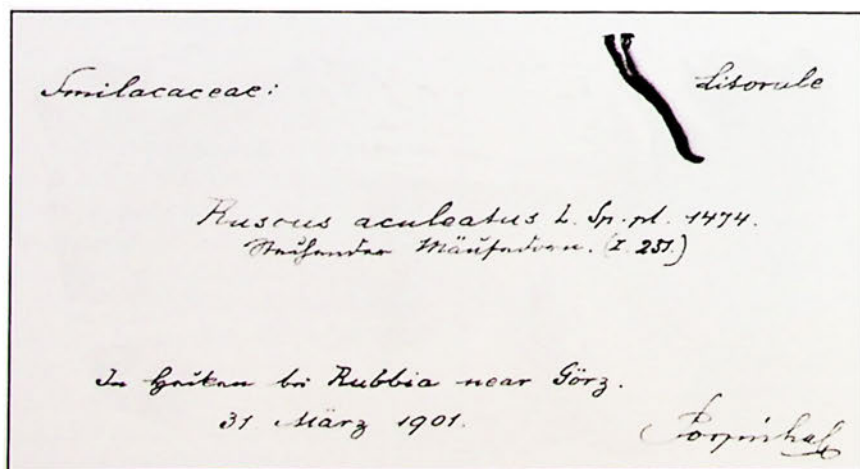 Smilacaceae: Litorale
Ruscus aculeatus L. Sp. pl. 1474.
Stechender Mäusedorn. (I. 231.)
In Hecken bei Rubbia near Görz.
31 März 1901.
Pospichal